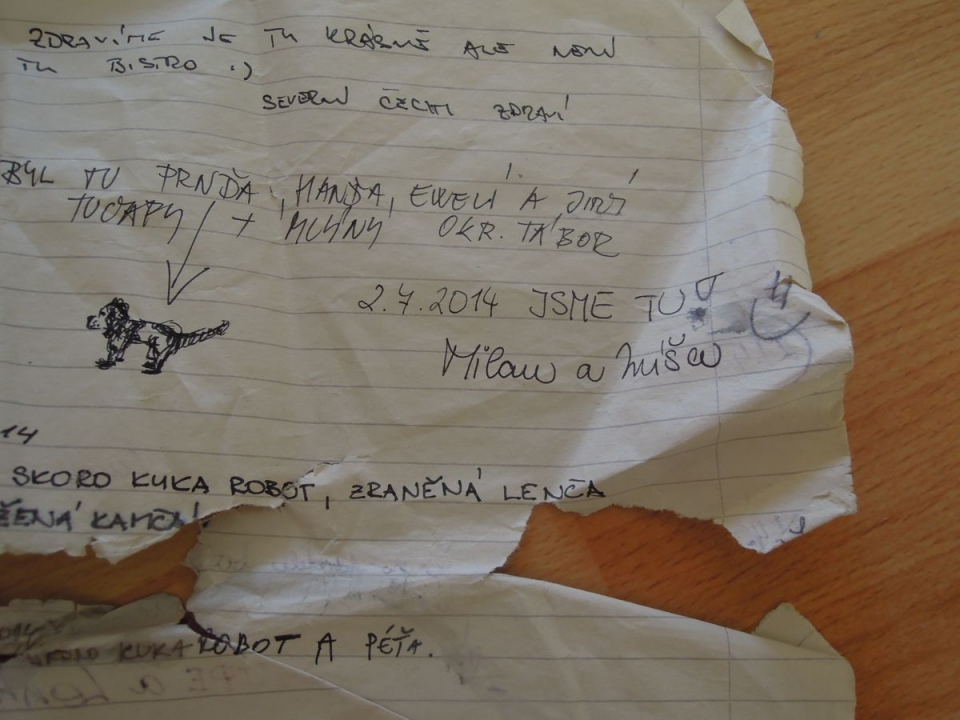 ZDRAVÍME JE TU KRÁSNĚ ALE NENÍ
TU BISTRO :)
SEVERNÍ ČECHY ZDRAVÍ
BYL TU PRNĎA, HANĎA, EWELÍ A JIŘÍ
TUČAPY + MLÝNY OKR. TÁBOR
2.7.2014 JSME TU
Milan a Míša
14
SKORO KUKA ROBOT, ZRANĚNÁ LENČA
KUKA ROBOT A PÉŤA.